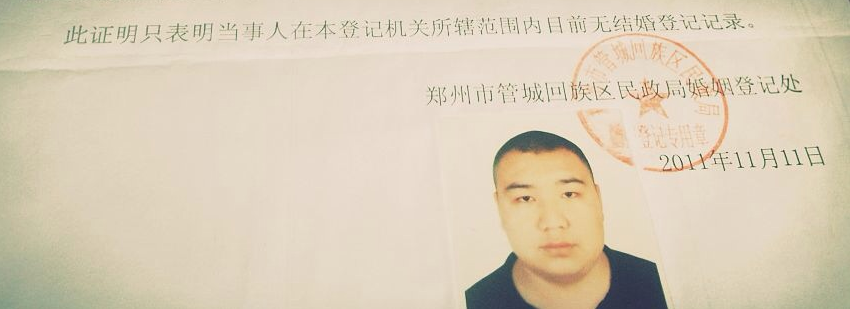 此证明只表明当事人在本登记机关所辖范围内目前无结婚登记记录。
郑州市管城回族区民政局婚姻登记处
市管城回族区民政局
登记专用章
2011年11月11日